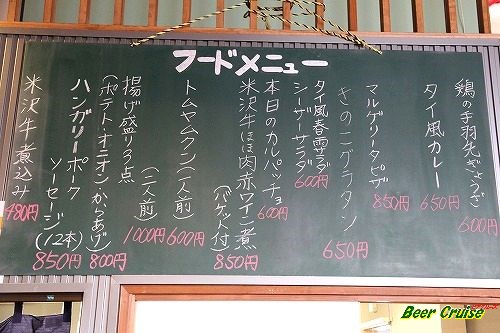 フードメニュー
鶏の手羽先ぎょうざ
600円
タイ風カレー
650円
マルゲリータピザ
850円
きのこグラタン
650円
タイ風春雨サラダ
シーザーサラダ
600円
本日のカルパッチョ
600円
米沢牛ほほ肉赤ワイン煮
(バゲット付)
850円
トムヤムクン(二人前)
600円
揚げ盛り3点(二人前)
1000円
(ポテト・オニオン・からあげ)
800円
ハンガリーポーク
ソーセージ(12本)
850円
米沢牛煮込み
480円
Beer Cruise